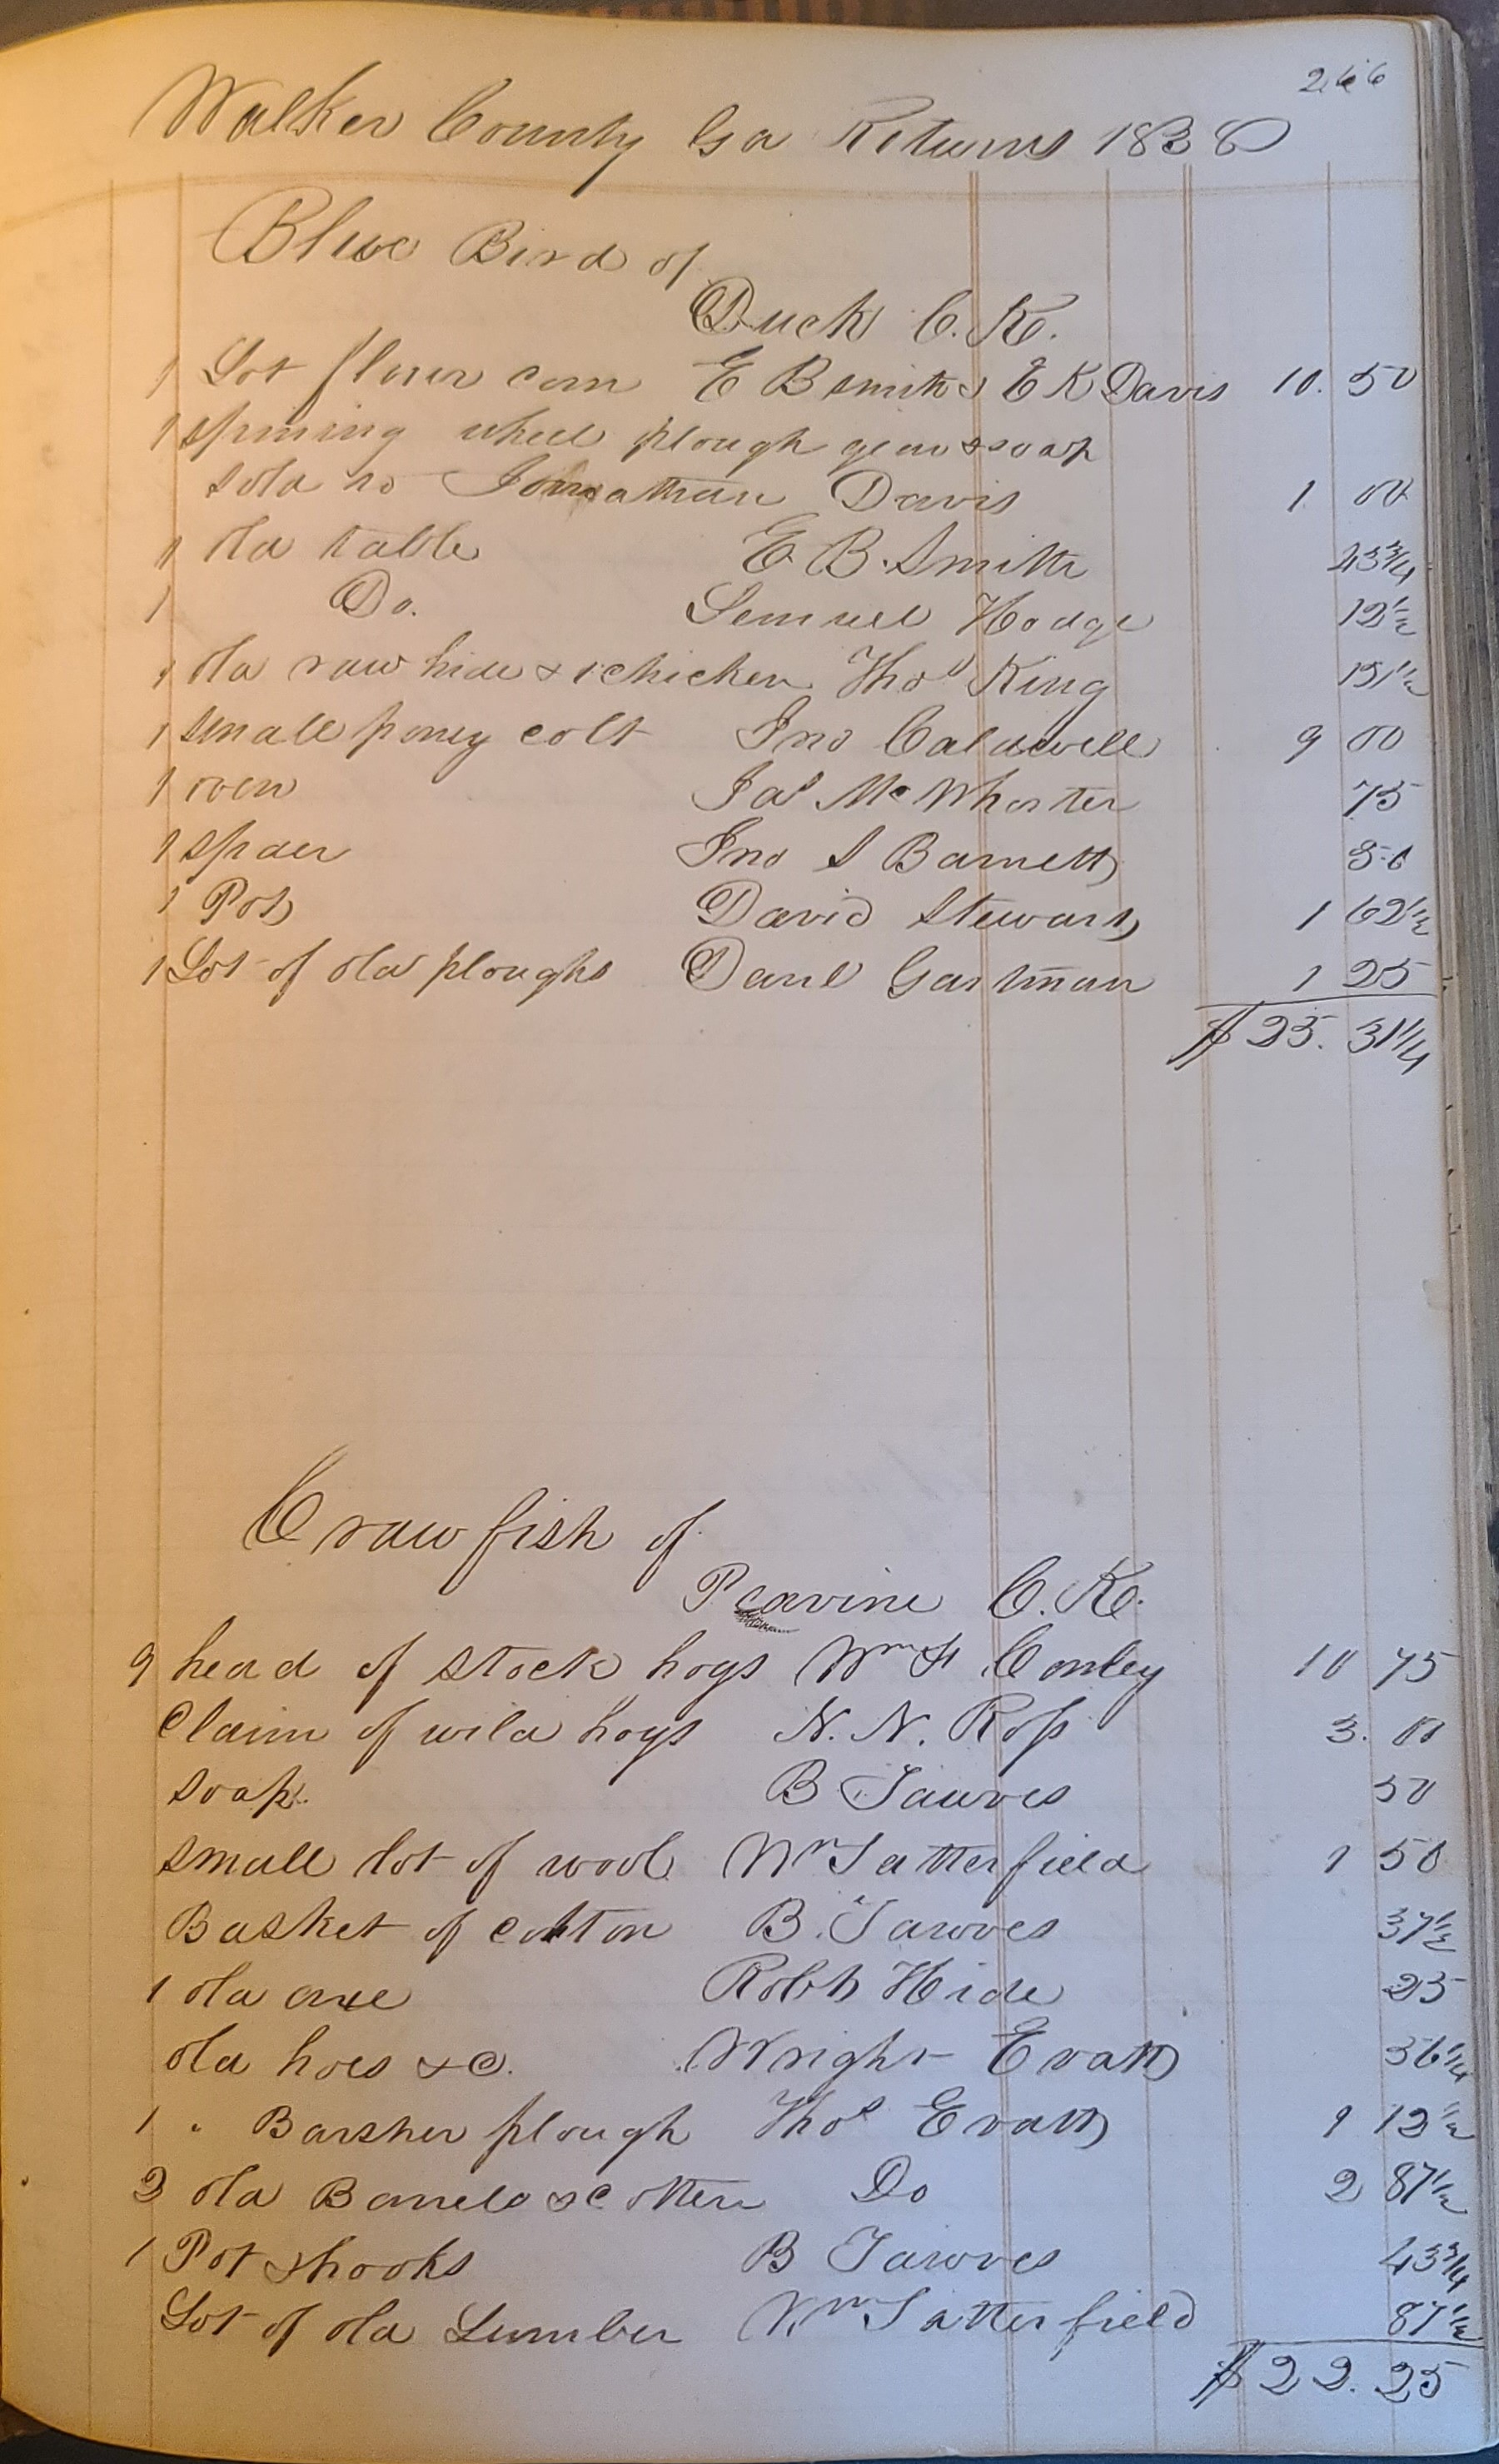 266
Walker County Ga Returns 1838
Blue Bird of
Duck C. K.
1 Lot flour corn E B Smith & E K Davis 10. 50
1 spining wheel plough gear & soap
sold to Jonathan Davis 1 00
1 old table E. B. Smith 43 3/4
1 Do. Lemuel Hodge 12 1/2
1 old raw hide & 1 chicken Thos King 12 1/2
1 small poney colt Jno Caldwell 9 00
1 oven Jas McWhorter 75
1 spaer Jno S Barnett 50
1 Pot David Stewart 1 62 1/2
1 Lot of old ploughs Danl Gartman 1 25
$25. 31 1/4
Crawfish of
Peavine C. K.
9 head of stock hogs Wm H Conley 10 75
Claim of wild hogs N. N. Ross 3. 00
soap. B Tawves 50
small lot of wool Wm Satterfield 1 50
Basket of cotton B. Tawves 37 1/2
1 old axe Robt Hide 25
old hoes &c. Wright Evatt 56 1/4
1 " Barsher plough Thos Evatt 1 12 1/2
3 old Barrels & cotten Do 2 87 1/2
1 Pot & hooks B Tawves 43 3/4
Lot of old Lumber Wm Satterfield 87 1/2
$22. 25